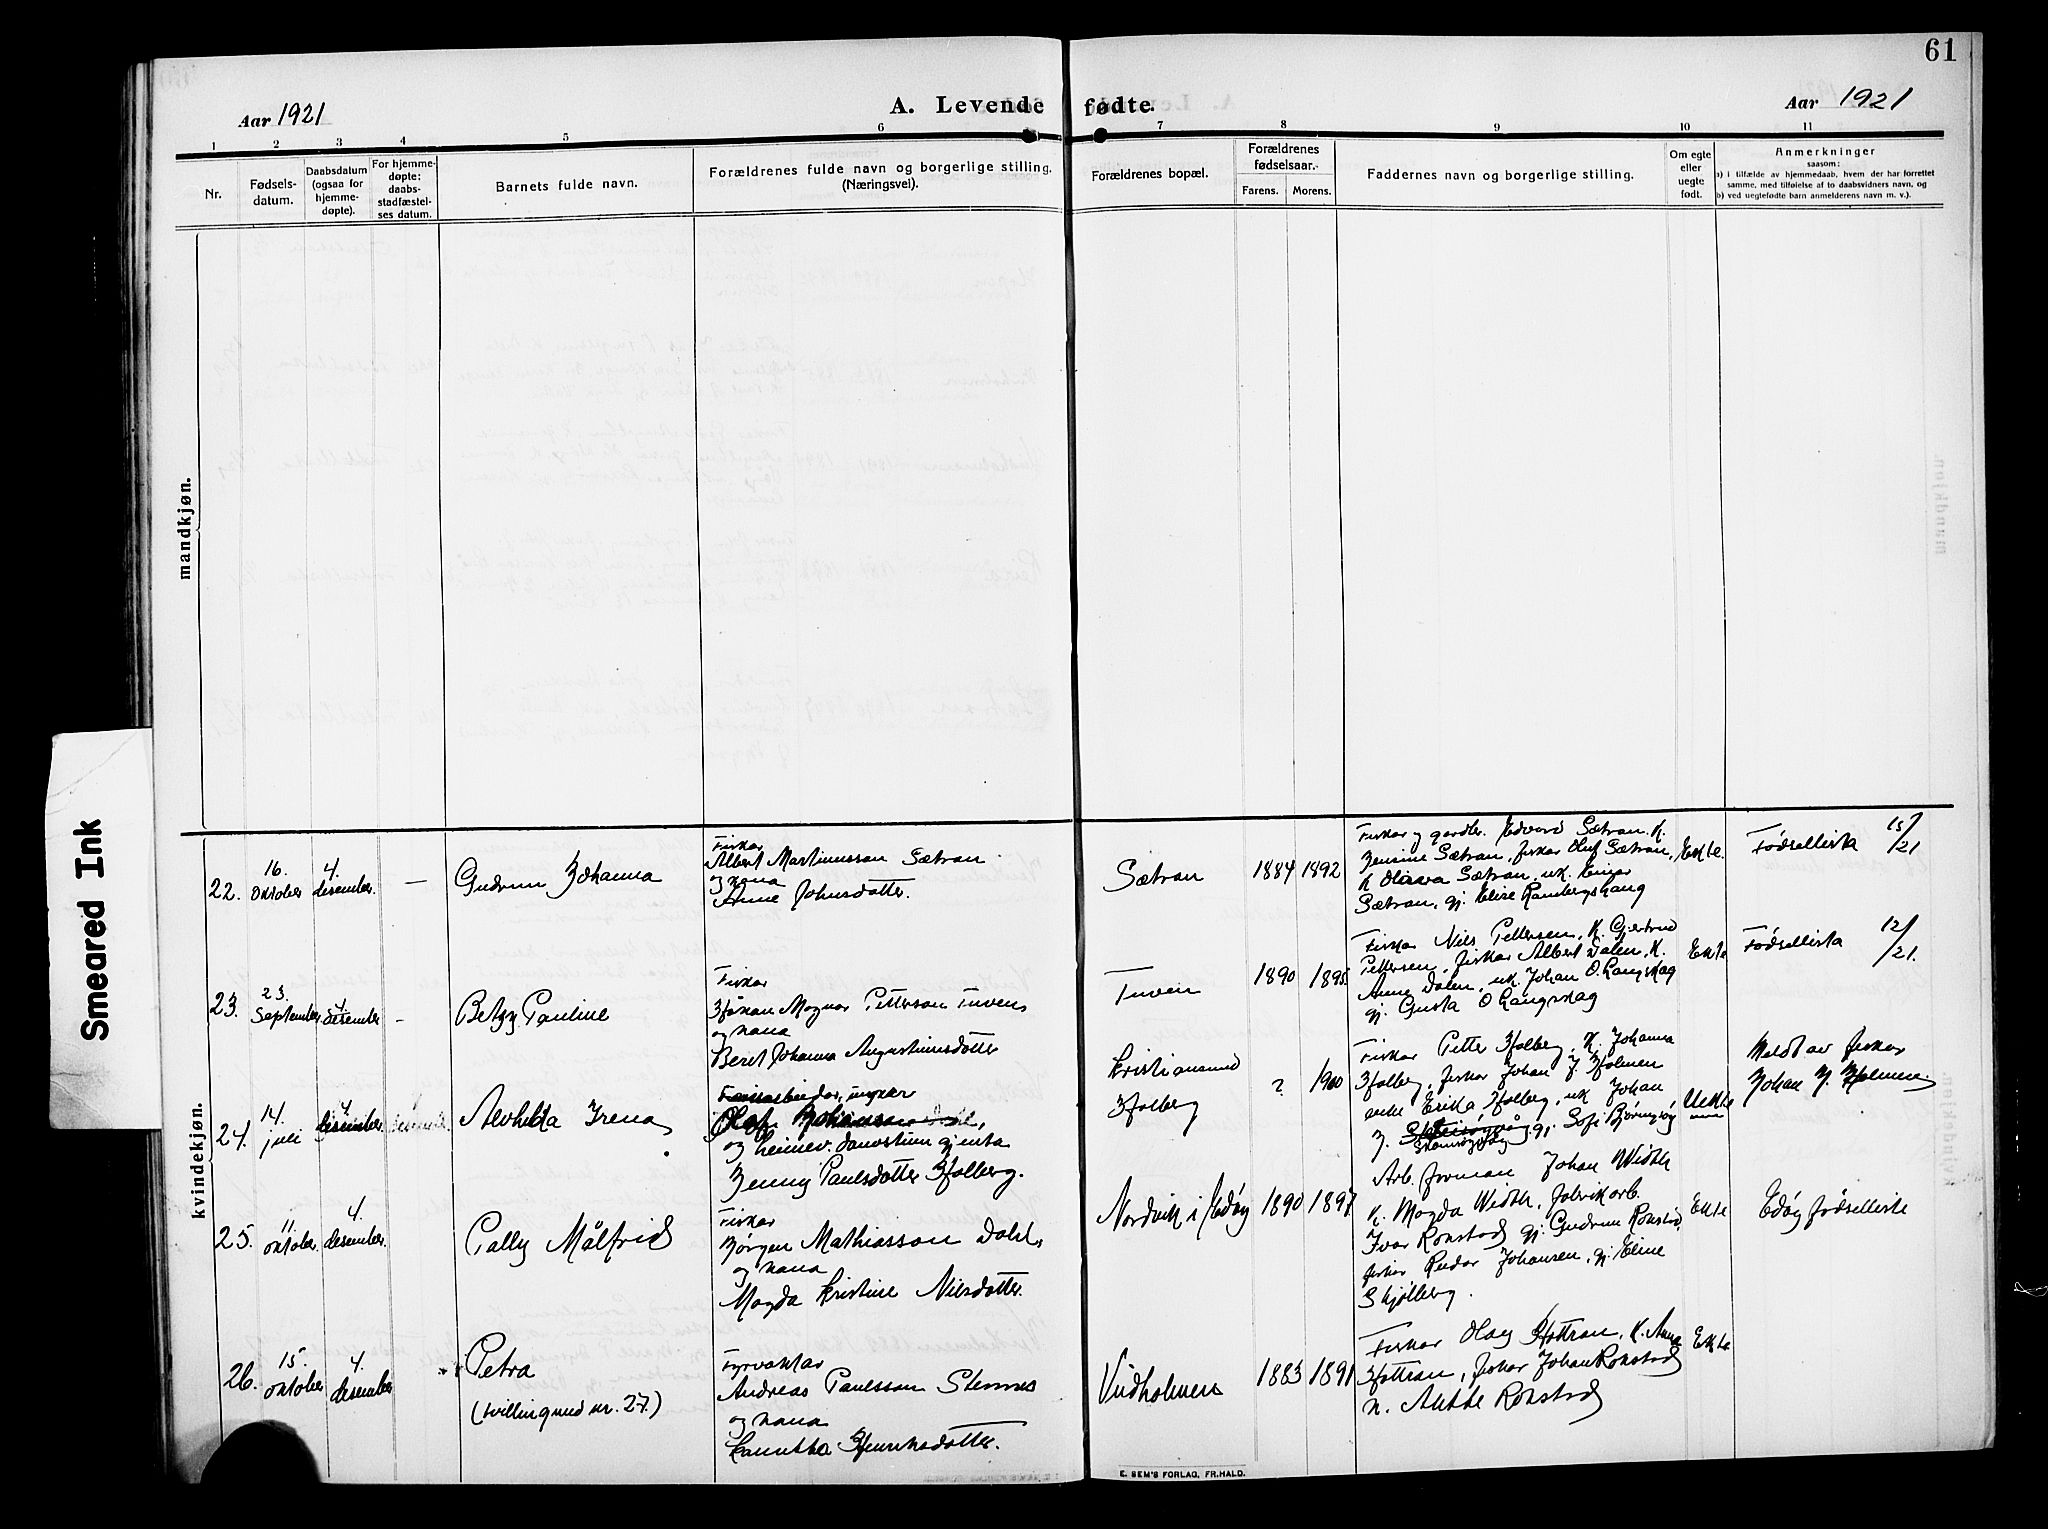 61
Aar 1921
A. Levende fødte.
Aar 1921
1 2 3 4 5 6 7 8 9 10 11
Nr.
Fødsels-
datum.
Daabsdatum
(ogsaa for
hjemme-
døpte).
For hjemme-
døpte:
daabs-
stadfæstel-
ses datum.
Barnets fulde navn.
Forældrenes fulde navn og borgerlige stilling.
(Næringsvei).
Forældrenes bopæl.
Forældrenes
fødselsaar.
Farens. Morens.
Faddernes navn og borgerlige stilling.
Om egte
eller
uegte
født.
Anmerkninger
saasom:
a) i tilfælde av hjemmedaab, hvem der har forrettet
samme, med tilføielse af to daabsvidners navn, og
b) ved uegtefødte barn anmelderens navn m. v.).
mandkjøn.
kvindekjøn.
22.
16.
oktober
4.
desember.
—
Gudrun Johanna
Fiskar
Albert Martinusson Sætran
og kona
Anne Johnsdotter.
Sætran
1884 1892
Fiskar og gardbr. Edvard Sætran. K.
Jensine Sætran, fiskar Oluf Sætran,
K Olaara Sætran, uk. Einar
Sætran, gj. Elise Rambergskaug
Ekte.
Fødsellista 15/21
23.
23.
September
4.
desember
-
Betzy Pauline
Fiskar
Håkon Magnus Petterson Tuven
og kona
Beret Johanna Augustinusdotter
Tuven
1890 1895.
Fiskar Nils Pettersen, K. Gjertrud
Pettersen, fiskar Albert Dalen, K.
Anne Dalen, uk. Johan O. Langskag
gj. Gusta O Langskag
Ekte
Fødsellista 12/21.
24.
14.
juli
4.
desember
Alvhilda Irena
ungkar
Olaf Johansson
og heimev. gjenta
Jenny Paulsdotter Holberg.
Kristiansund
Holberg
? 1900
Fiskar Petter Holberg, K. Johanna
Holberg, fiskar Johan J Holmen
Erika Holberg, uk Johan
J. gj. Sofi Bjørngsøy
Uekte
Meldt av fiskar
Johan J. Holmen.
25.
11
oktober.
4.
desember.
Pally Målfrid
Fiskar
Jørgen Mathiasson Dahl,
og kona
Magda Kristine Nilsdotter.
Nordvik i Edøy
1890 1897
Arb. forman Johan Width
K. Magda Width, fabrikarb.
Ivar Rokstad gj. Gudrun Rokstad
fiskar Reidar Johansen, gj. Eline
Skjølberg.
Ekte
Edøy fødselliste
26.
15.
oktober
4.
desember
Petra
(tvilling med nr. 27.)
Fyrvaktar
Andreas Paulsson Stennes
og kona
Henriksdotter.
Vindholmen
1883 1891
Fiskar Olav Hottran, K. Anna
Hottran, fiskar Johan Rokstad
K. Anette Rokstad
Ekte
E. SEM'S FORLAG, FR.HALD.
Smeared Ink